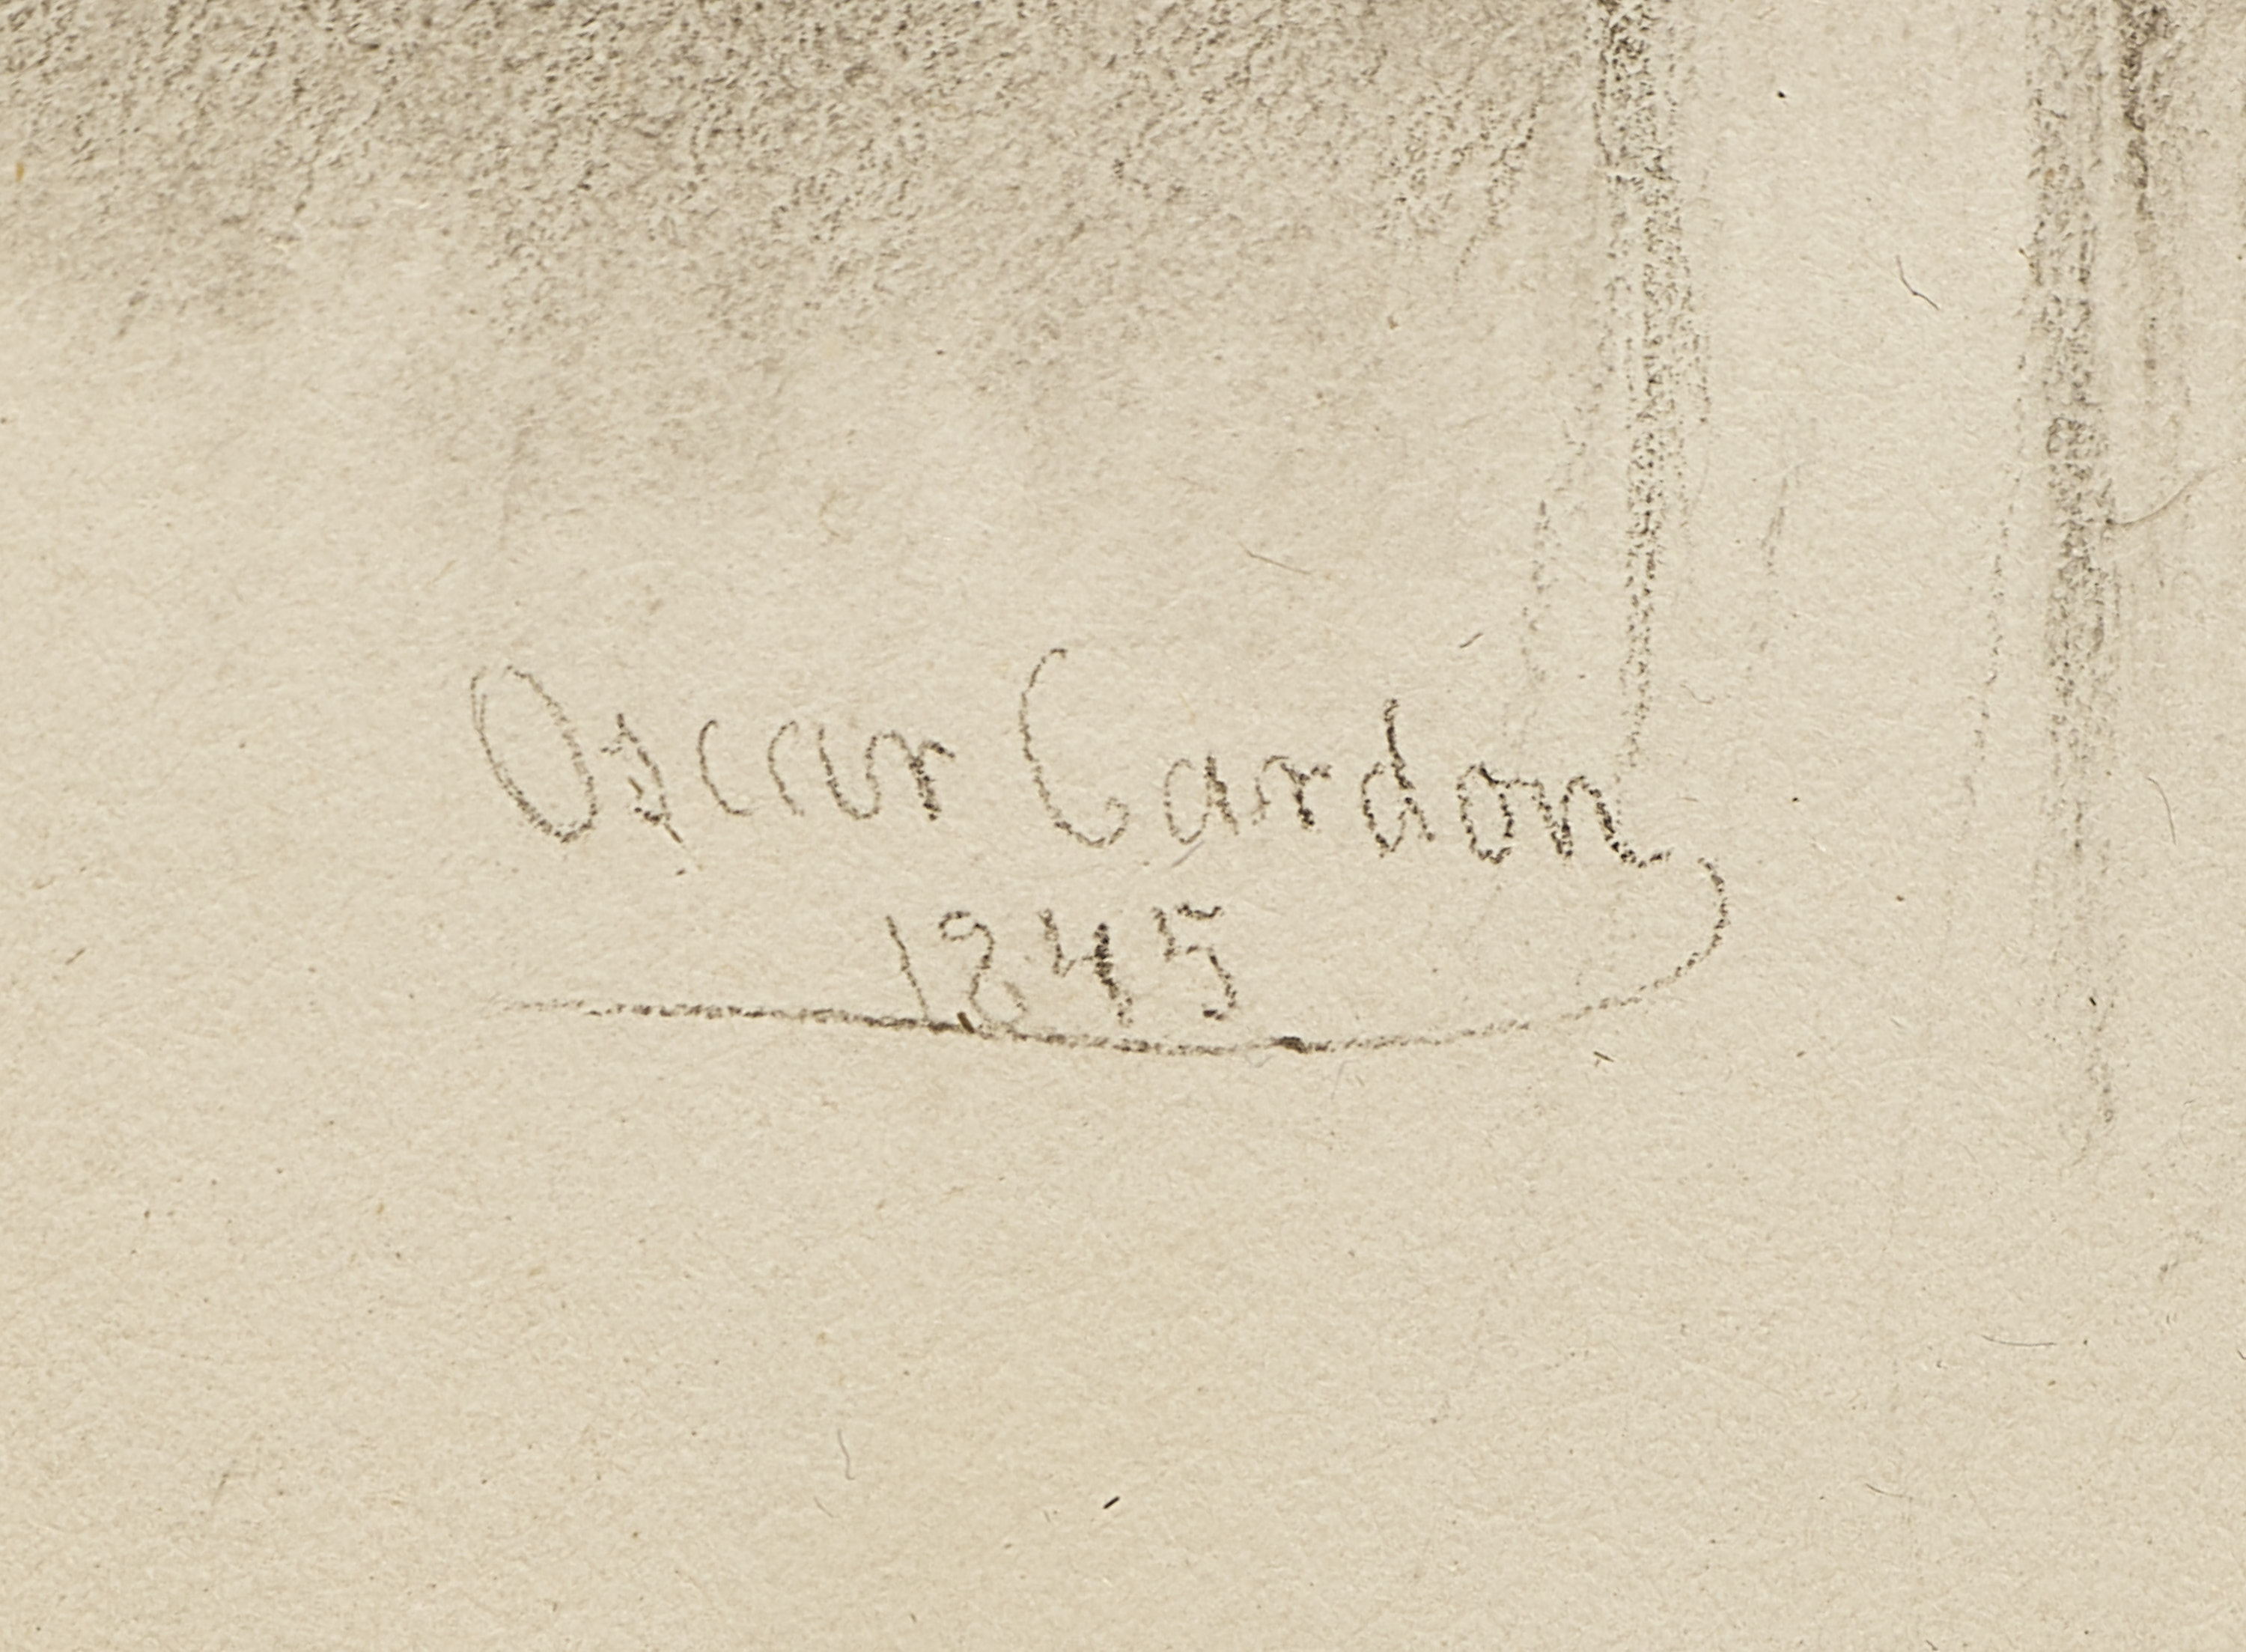 Oscar Cardon
1845